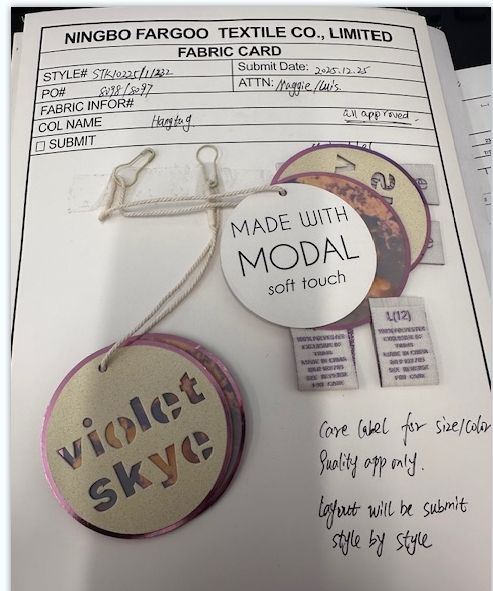 NINGBO FARGOO TEXTILE CO., LIMITED
FABRIC CARD
STYLE# STK10225/11232
Submit Date: 2025.12.25
PO# 8098/8097
ATTN: Maggie/Luis.
FABRIC INFOR#
COL NAME Hangtag
all approved.
☐ SUBMIT
MADE WITH
MODAL
soft touch
L(12)
MADE IN CHINA
FOR CARE
violet
skye
Care label for size/color
Quality app only.
Layout will be submit
style by style